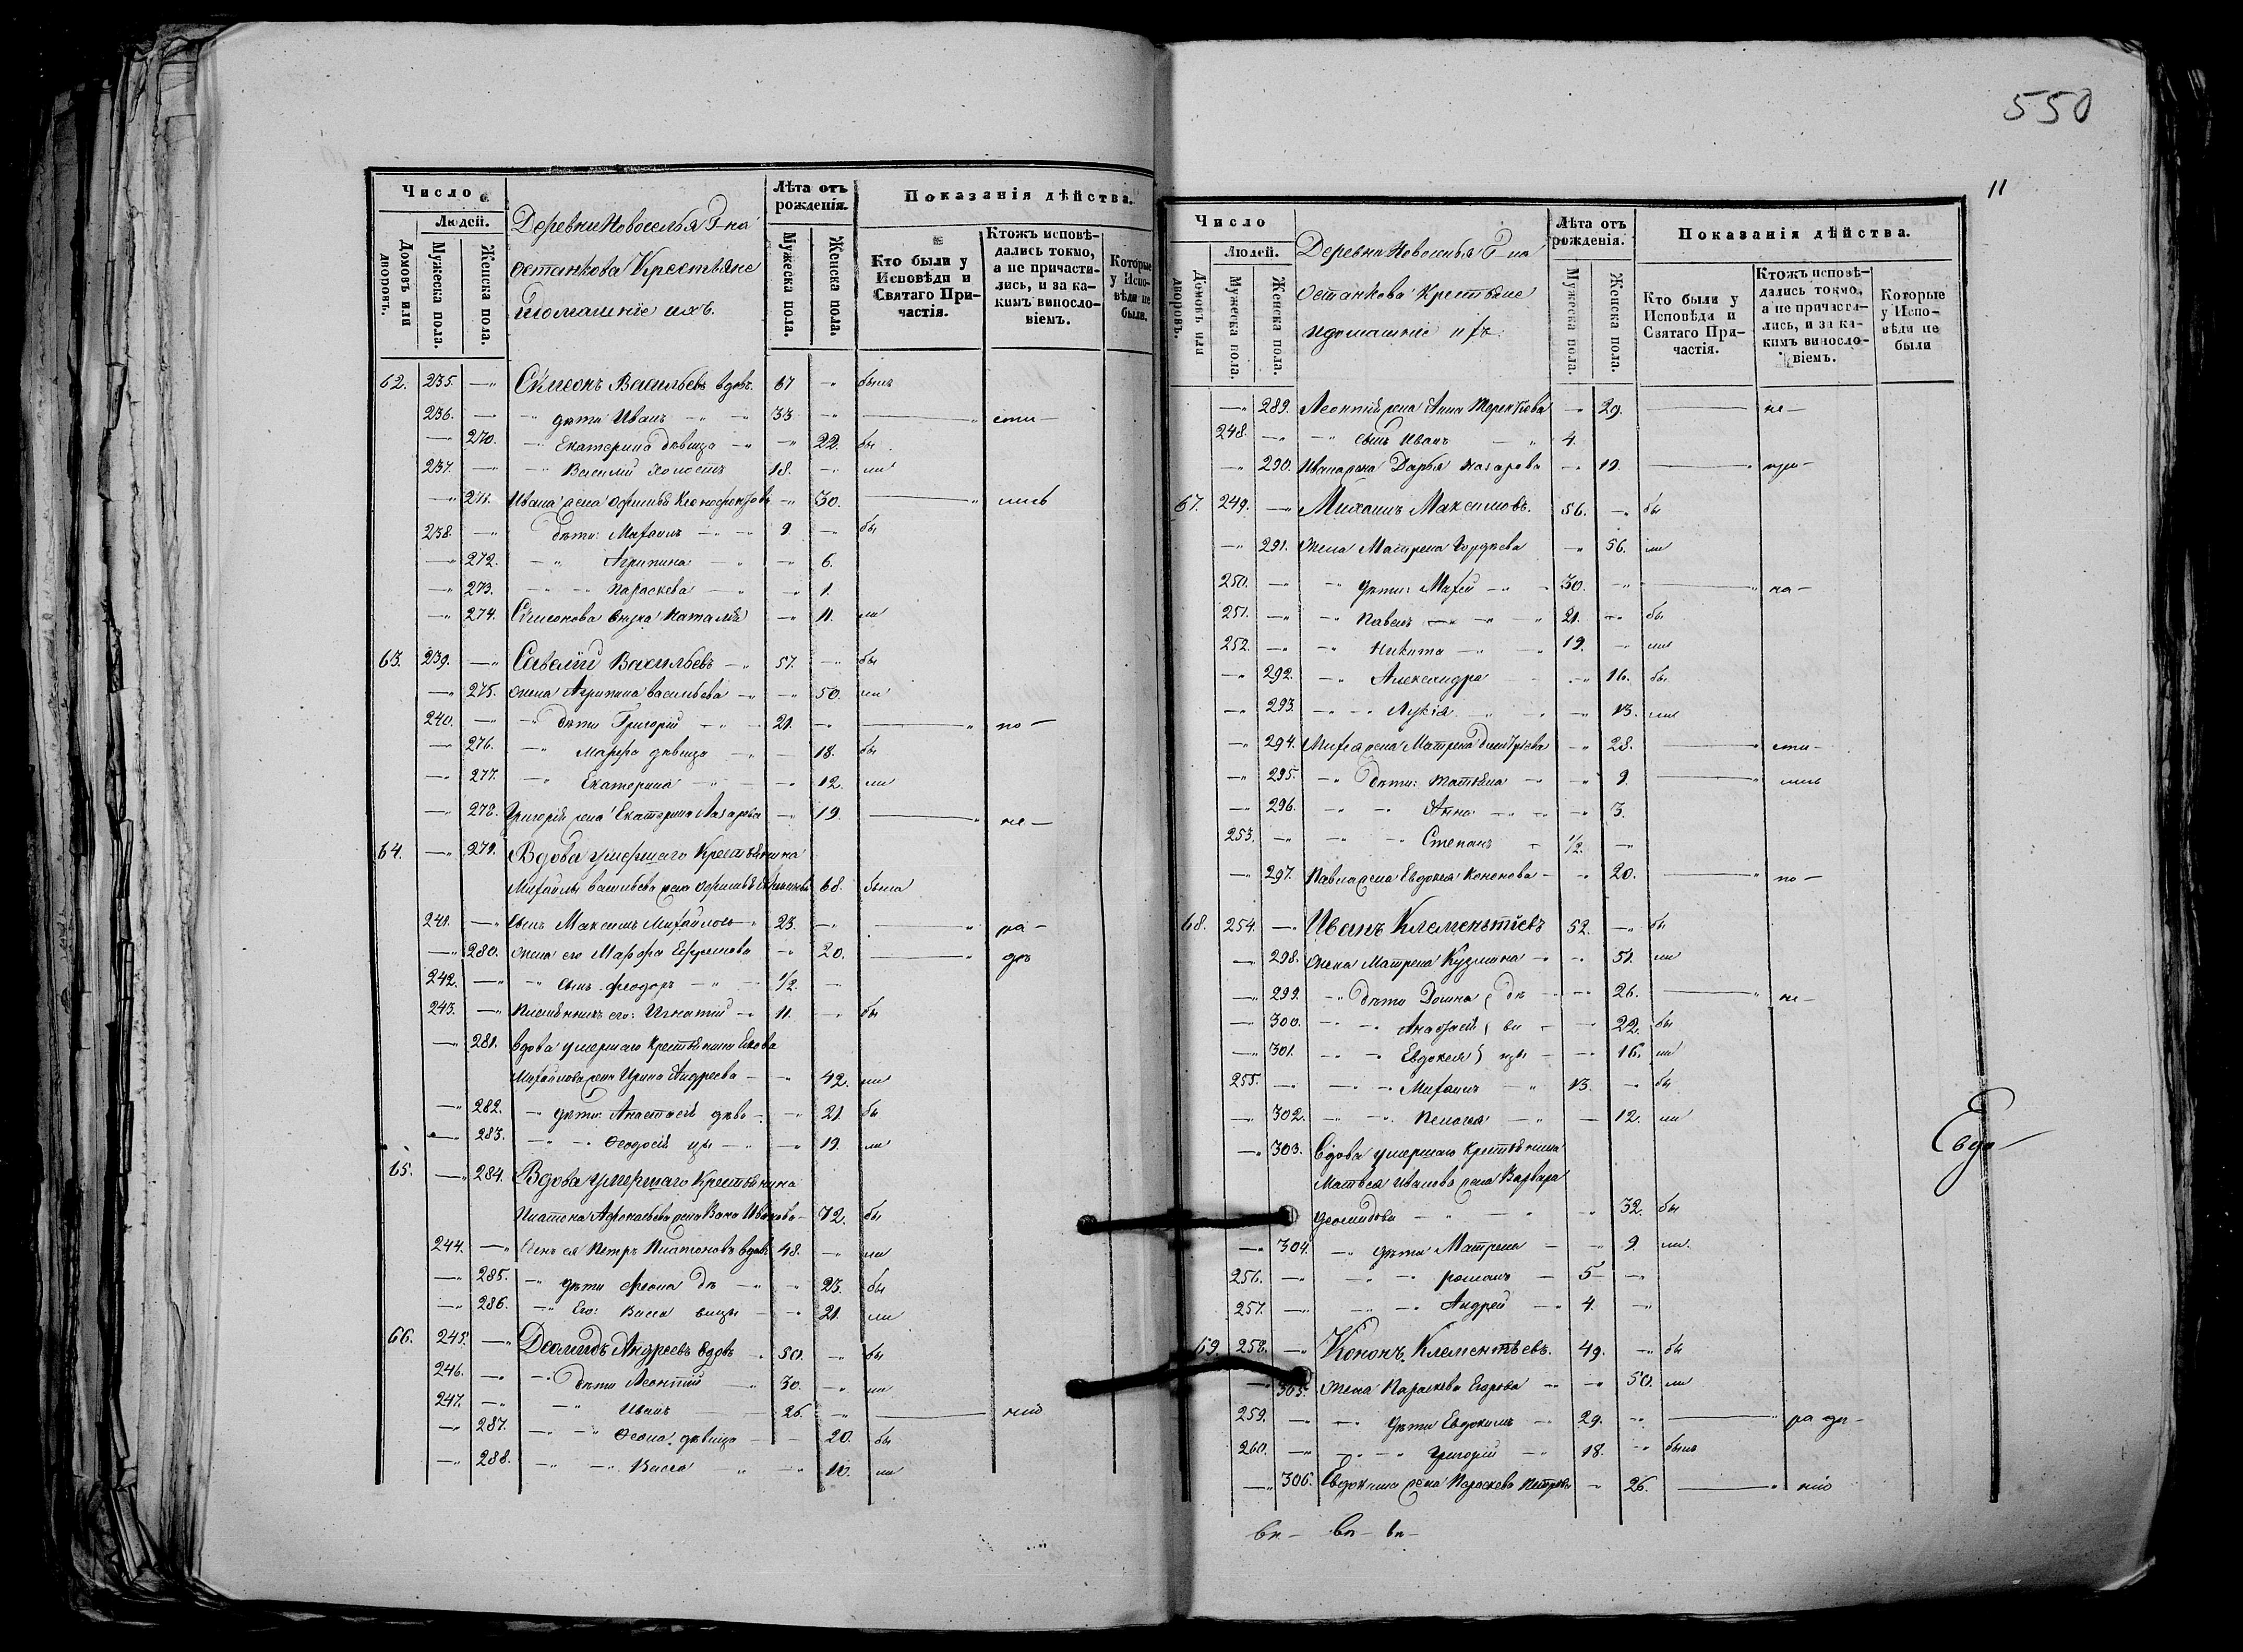 Число
Людей.
Домовъ или дворовъ.
Мужеска пола.
Женска пола.
Деревни Новоселья Г-на
Останкова Крестьяне
Домашніе ихъ.
Лѣта отъ рожденія.
Мужеска пола.
Женска пола.
Показанія дѣйства.
Кто были у Исповѣди и Святаго При-частія.
Ктожъ исповѣ-дались токмо, а не причасти-лись, и за ка-кимъ виносло-віемъ.
Которые у Испо-вѣди не были.
62. 235. —„ Симеонъ Васильевъ вдовъ. 67 —„ былъ
236. —„ дѣти Иванъ 33 —„ —„ сти—
—„ 270. Екатерина дѣвица —„ 22. бы
237. —„ Василій холостъ 18. —„ ли
—„ 271. Ивана жена Ефимья —„ 30. —„ лись
238. —„ дѣти: Михаилъ 9. —„ бы
—„ 272. Агрипина —„ 6.
—„ 273. Параскева —„ 1.
—„ 274. Симеонова внука Наталія —„ 11. ли
63. 239. —„ Савелій Васильевъ 57. —„ бы
—„ 275. Жена Агрипина Васильева —„ 50. ли
240. —„ дѣти Григорій 21. —„ —„ по—
—„ 276. Марфа дѣвица — 18. бы
—„ 277. Екатерина —„ 12. ли
—„ 278. Григорія жена Екатерина Лазарева —„ 19. —„ не—
64. —„ 279. Вдова умершаго Крестьянина
Михайлы Васильева жена 68. была
241. —„ Сынъ Максимъ Михайловъ 23. —„ —„ ра—
—„ 280. Жена его Марфа Ефимова —„ 20. —„ дѣ
242. —„ Сынъ Феодоръ 1/2. —„
243. —„ Племянникъ его: Игнатій 11. —„ бы
—„ 281. Вдова умершаго Крестьянина
Михайлова жена Ирина Андреева —„ 42. ли
—„ 282. дѣти: Анастасія дѣви —„ 21 бы
—„ 283. Феодосія цы —„ 19. ли
65. —„ 284. Вдова умершаго Крестьянина
Платона Афонасьева жена Иванова 72. бы
244. —„ Сынъ ея Петръ Платоновъ вдовъ 48. —„ ли
—„ 285. дѣти Феона дѣ —„ 23. бы
—„ 286. Его: Васса вицы —„ 21. ли
66. 245. —„ Деомидъ Андреевъ вдовъ 50. —„ бы
246. —„ дѣти Леонтій 30. —„ ли
247. —„ Иванъ 26. —„ нію
—„ 287. Феона дѣвица — 20. бы
—„ 288. Васса —„ 10. ли
550
11
Число
Людей.
Домовъ или дворовъ.
Мужеска пола.
Женска пола.
Деревни Новоселья Г-на
Останкова Крестьяне
и домашніе ихъ.
Лѣта отъ рожденія.
Мужеска пола.
Женска пола.
Показанія дѣйства.
Кто были у Исповѣди и Святаго При-частія.
Ктожъ исповѣ-дались токмо, а не причасти-лись, и за ка-кимъ виносло-віемъ.
Которые у Испо-вѣди не были
—„ 289. Леонтія жена Анна Терентьева —„ 29. — не—
248. —„ сынъ Иванъ 4.
—„ 290. Ивана жена Дарья Назарова —„ 19. —„ при—
67. 249. —„ Михаилъ Максимовъ. 56. —„ бы
—„ 291. Жена Матрена Гордѣева —„ 56. ли
250. —„ дѣти: Михей 30. —„ —„ на—
251. —„ Павелъ 21. —„ бы
252. —„ Никита 19. —„ ли
—„ 292. Александра —„ 16. бы
—„ 293. Лукія —„ 13. ли
—„ 294. Михея жена Матрена Дмитріева —„ 28. —„ сти—
—„ 295. дѣти: Татьяна —„ 9. —„ лись
—„ 296. Анна —„ 3.
253. —„ Степанъ 1/2. —„
—„ 297. Павла жена Евдокея Кононова —„ 20. —„ по—
68. 254. —„ Иванъ Клементіевъ 52. —„ бы
—„ 298. Жена Матрена Кузмина —„ 51. ли
—„ 299. дѣти Домна дѣ —„ 26. —„ не—
—„ 300. ви —„ 22. бы
—„ 301. Евдокея цы —„ 16. ли
255. —„ Михаилъ 13. —„ бы
—„ 302. Пелагея — 12. ли
—„ 303. Вдова умершаго Крестьянина
Матвея Иванова жена Варвара
Деомидова —„ 32. бы
—„ 304. дѣти Матрена —„ 9. ли.
256. —„ Романъ 5 —„
257. —„ Андрей 4. —„
69. 258. —„ Кононъ Клементьевъ. 49. —„ бы
—„ 305. Жена Параскева Егорова —„ 50. ли
259. —„ дѣти Евдокимъ 29. —„ —„ ра дѣ—
260. —„ Григорій 18. —„ былъ
—„ 306. Евдокима жена Параскева Петрова —„ 26. —„ нію
Евдо—